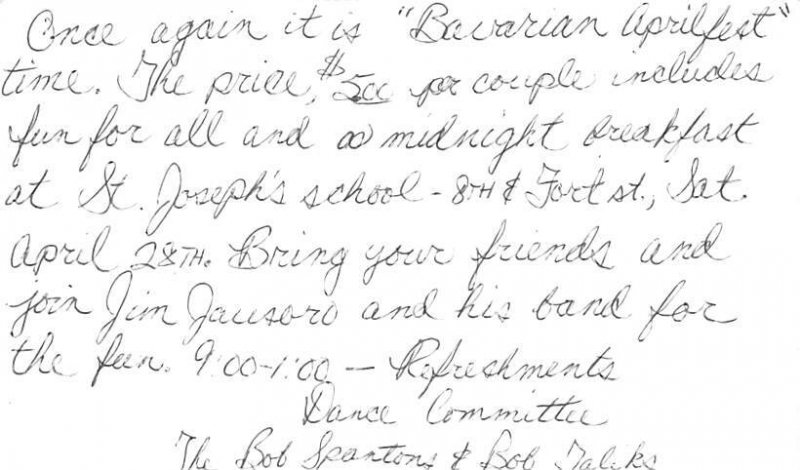 Once again it is "Bavarian Aprilfest"
time. The price, $5.00 per couple includes
fun for all and a midnight breakfast
at St. Joseph's school - 8TH & Fort st., Sat.
April 28TH. Bring your friends and
join Jim Jausoro and his band for
the fun. 9:00-1:00 — Refreshments
Dance Committee
The Bob Spantons & Bob Taliks